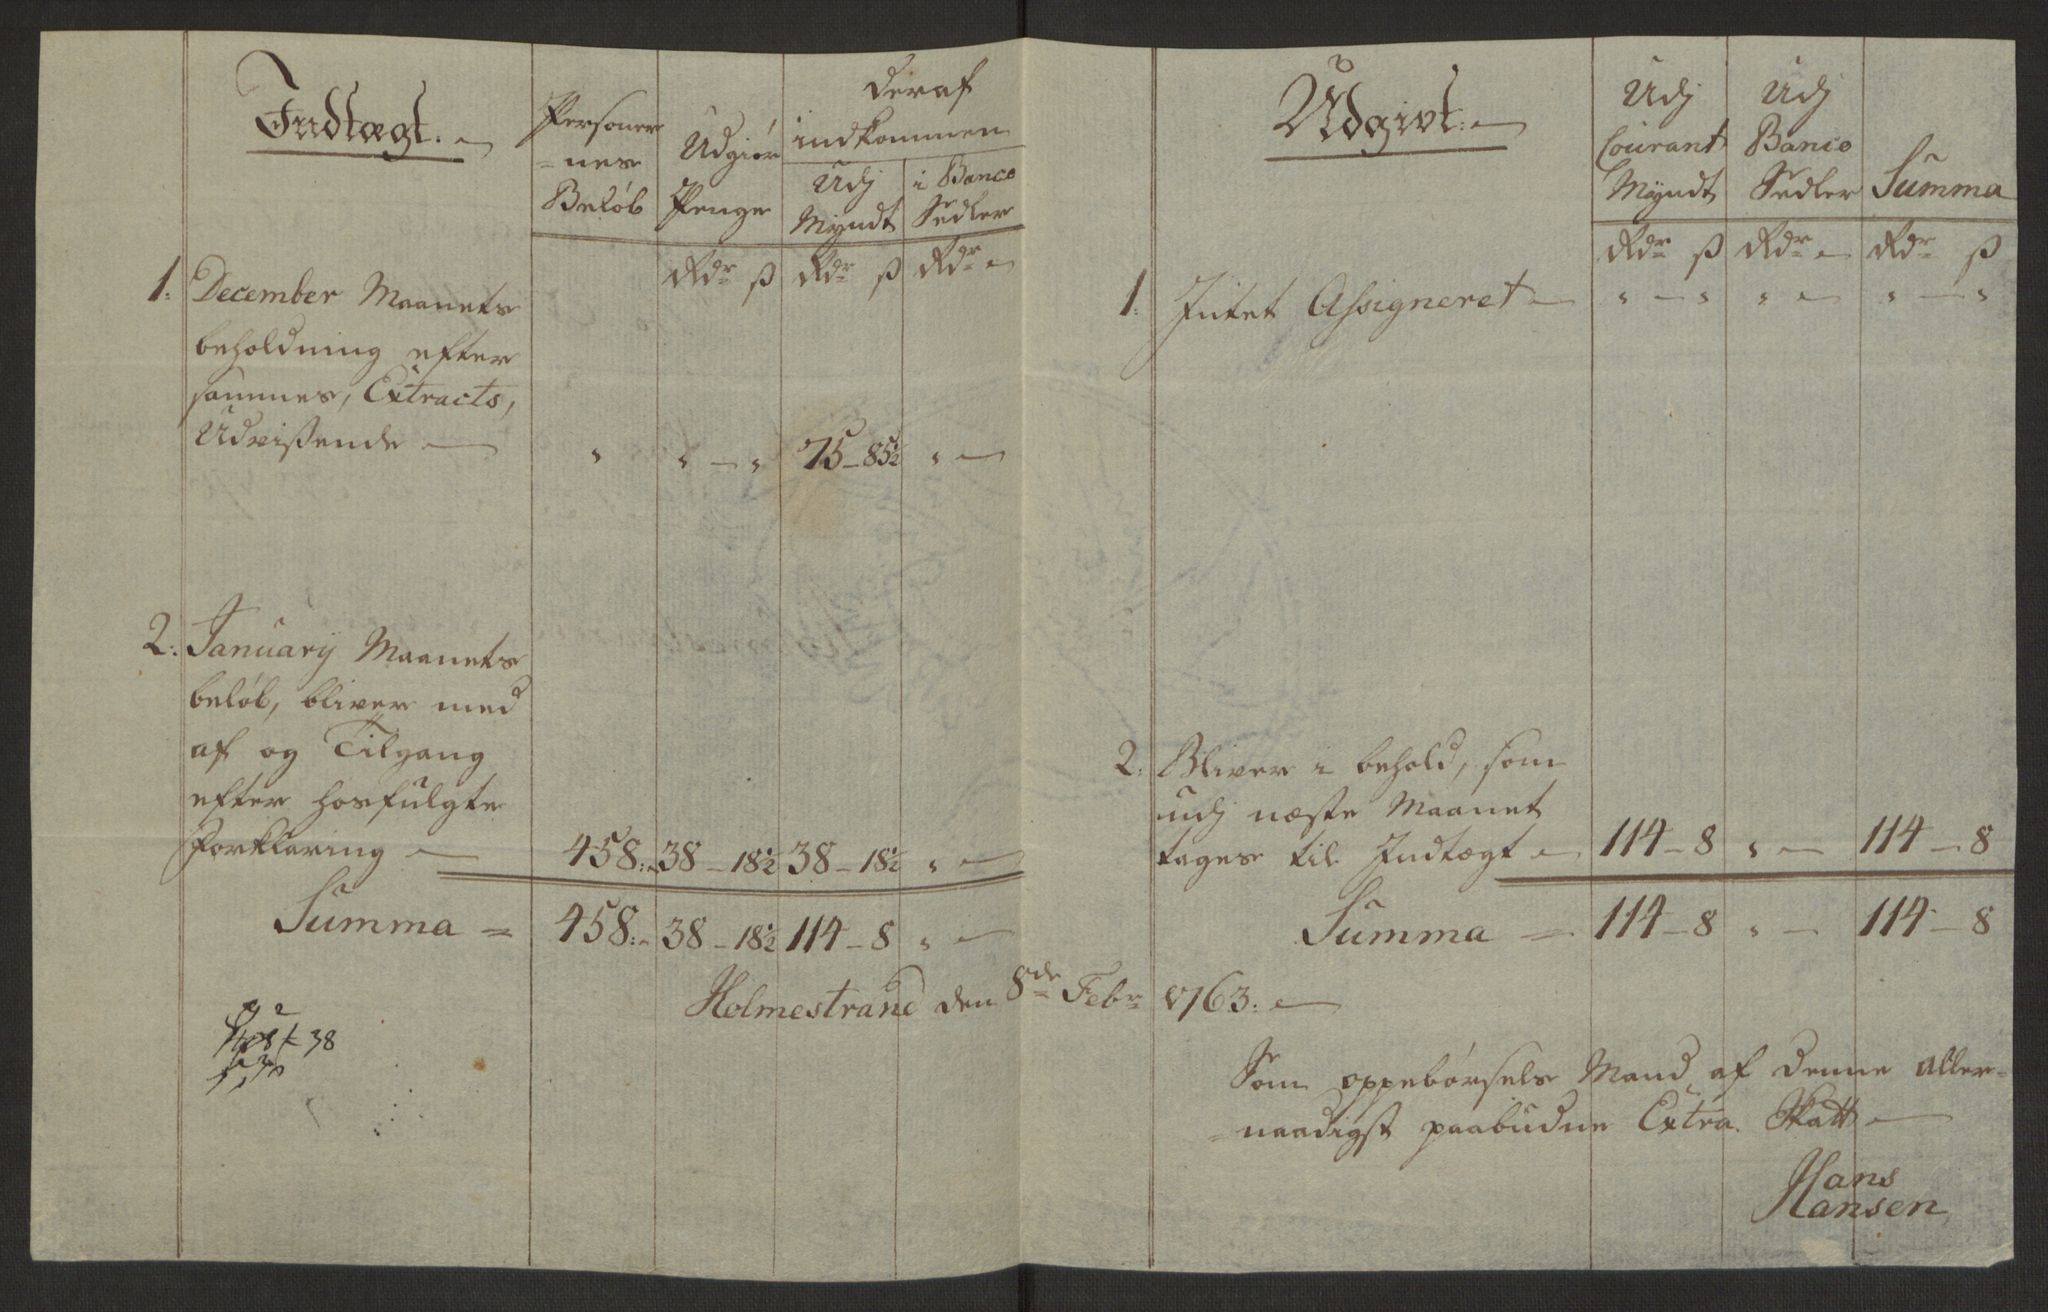 Indtægt.
Personer
=nes
Beløb
Udgiør
Penge
deraf
indkommen
Udj
Myndt
i Banco
Sedler
Rdr ß Rdr ß Rdr
1. December Maanets
beholdning efter
sammes, Extracts,
Udvißende — " " — " 75 – 85½ " —
2. January Maanets
beløb, bliver med
af og Tilgang
efter hosfulgte
Forklaring — 458. 38 – 18½ 38 – 18½ " —
Summa = 458. 38 – 18½ 114 – 8 " —
38
Udgivt.
Udj
Courant
Myndt
Udj
Banco
Sedler
Summa
Rdr ß Rdr Rdr ß
1. Intet Assigneret — " — " " — " — "
2. Bliver i behold, som
udj næste Maanet
tages til Indtægt — 114 – 8 " — 114 – 8
Summa = 114 – 8 " — 114 – 8
Holmestrand den 8de Febr 1763.
Som oppebørsels Mand af denne aller=
=naadigst paabudne Extra Skatt —
Hans
Hansen